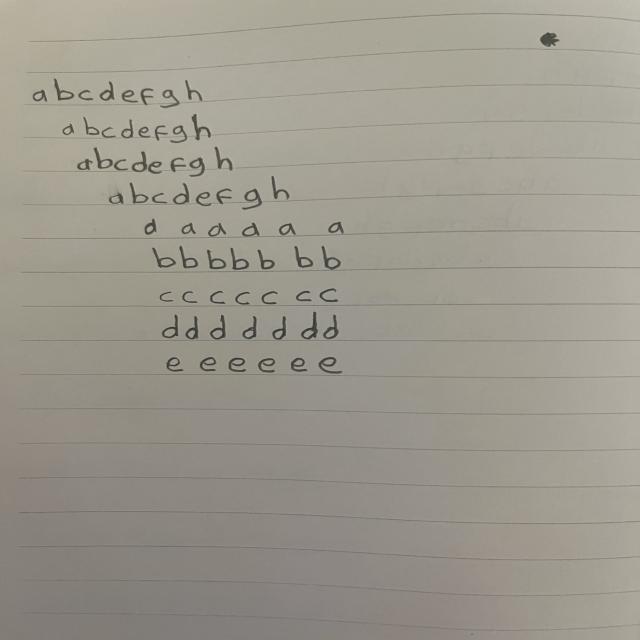 abcdefgh
abcdefgh
abcdefgh
abcdefgh
a a a a a a
bbbbb bb
ccccc cc
ddd d d dd
e e e e e e